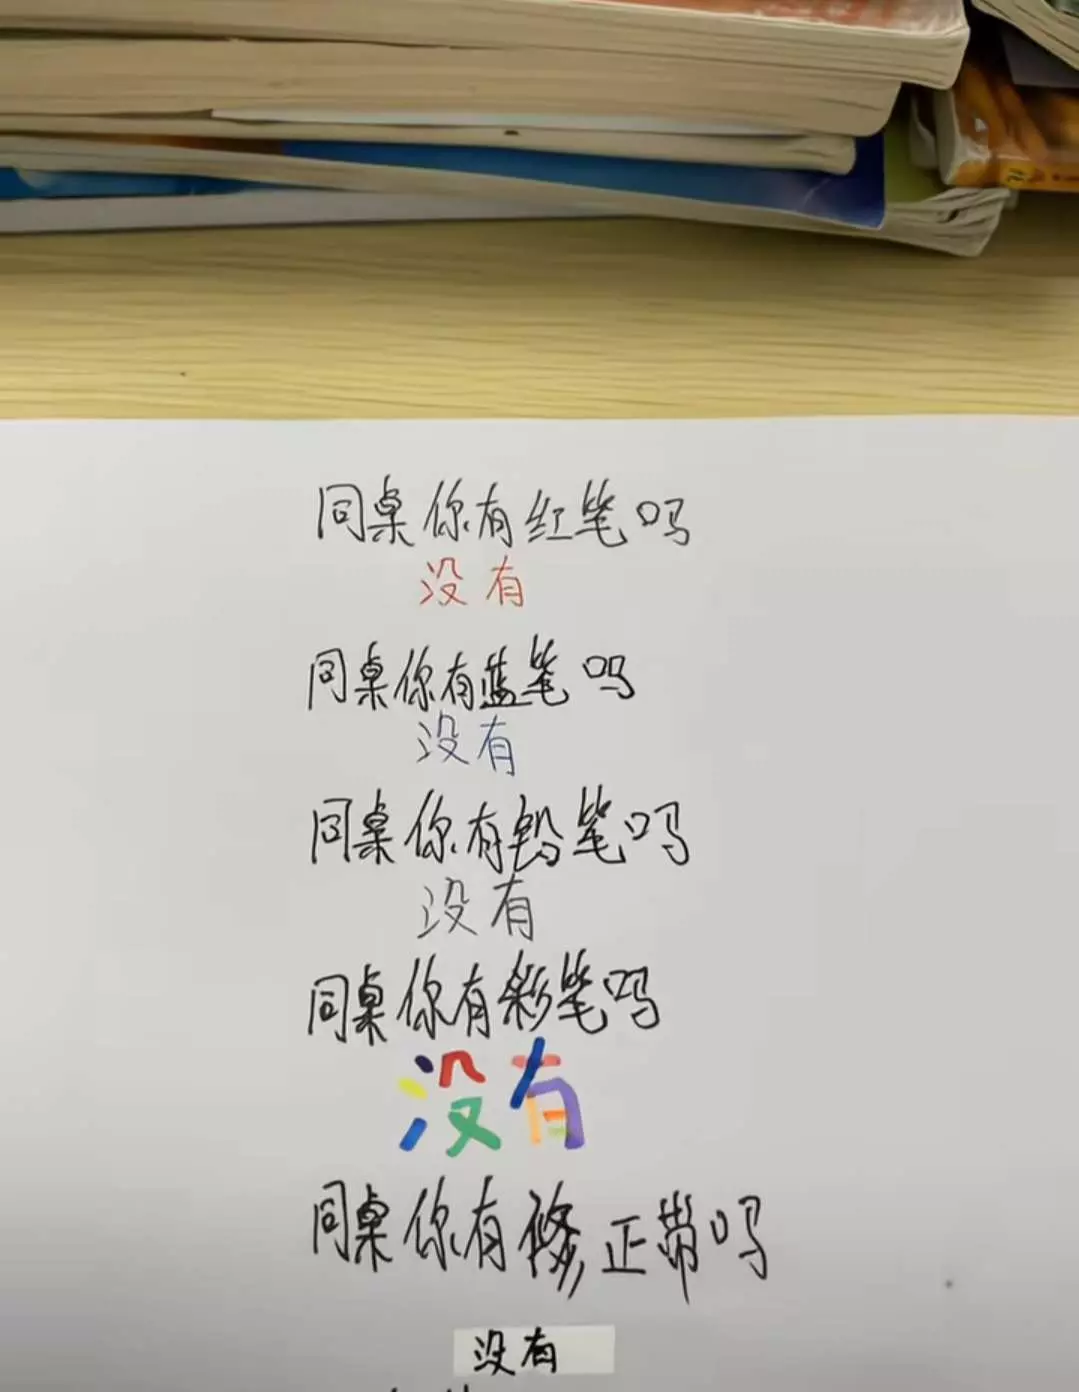 同桌你有红笔吗
没有
同桌你有蓝笔吗
没有
同桌你有铅笔吗
没有
同桌你有彩笔吗
没有
同桌你有修正带吗
没有